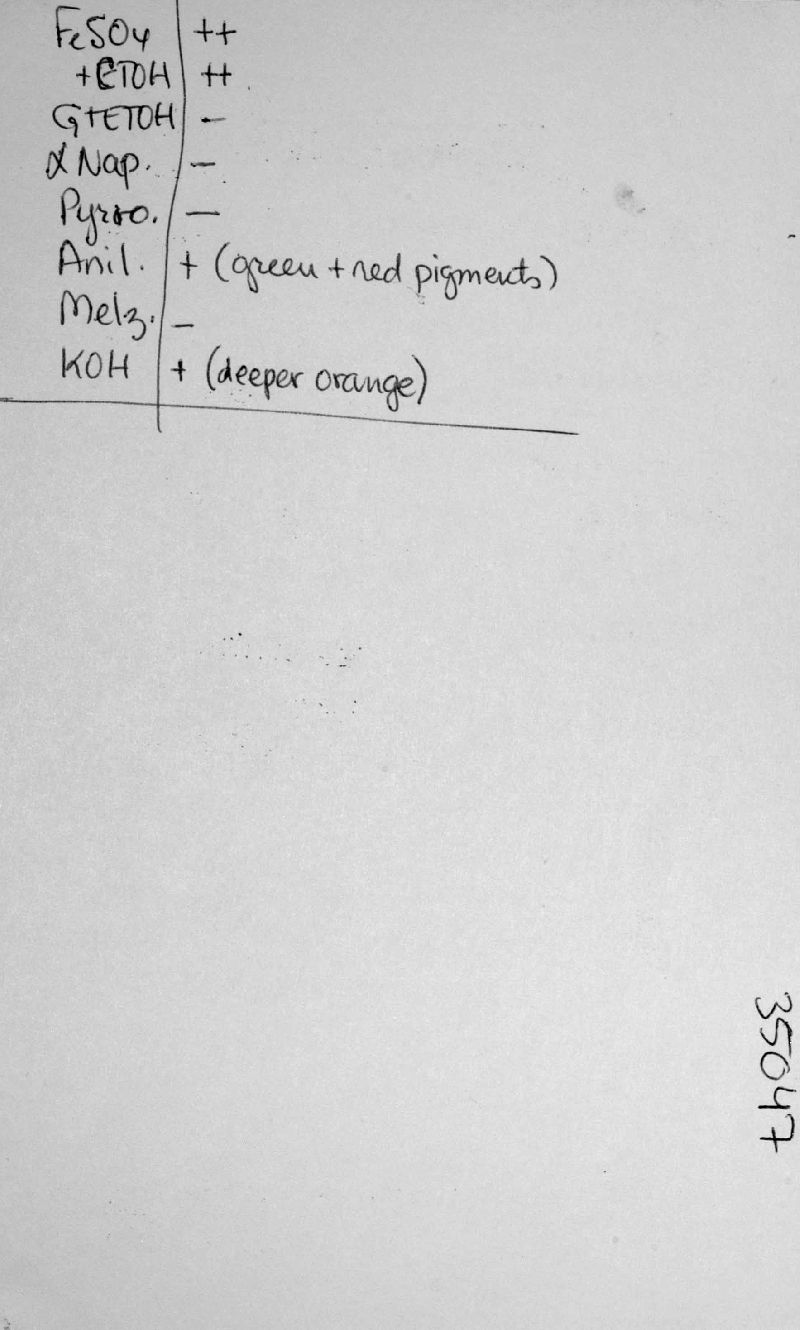 FeSO4 ++
+ETOH ++
G+ETOH -
αNap. -
Pyrro. -
Anil. + (green + red pigments)
Melz. -
KOH + (deeper orange)
35047